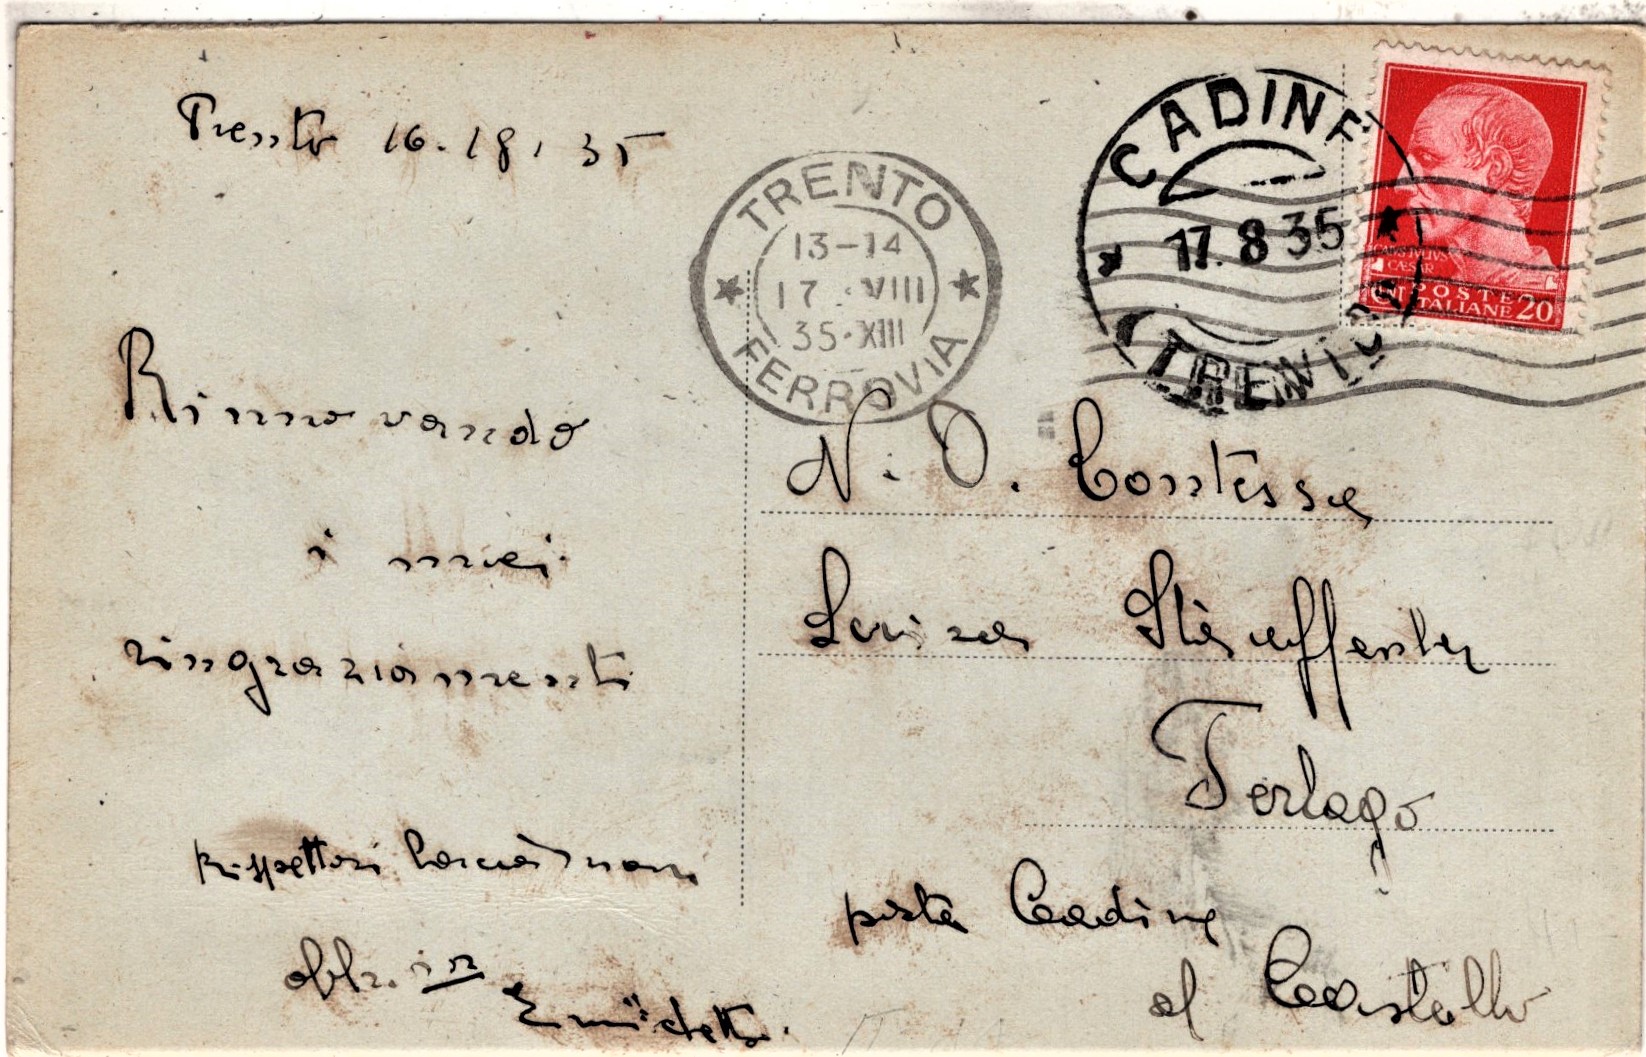 Trento 16.18.35
Rinnovando
i miei
ringraziamenti
rispettosi
TRENTO
13-14
17 . VIII
35 · XIII
FERROVIA
CADINE
17.8 35
(TRENTO)
CAIVS IVLIVS
CAESAR
CENT POSTE
ITALIANE 20
N. D. Contessa
Luisa
Terlago
posta Cadine
al Castello